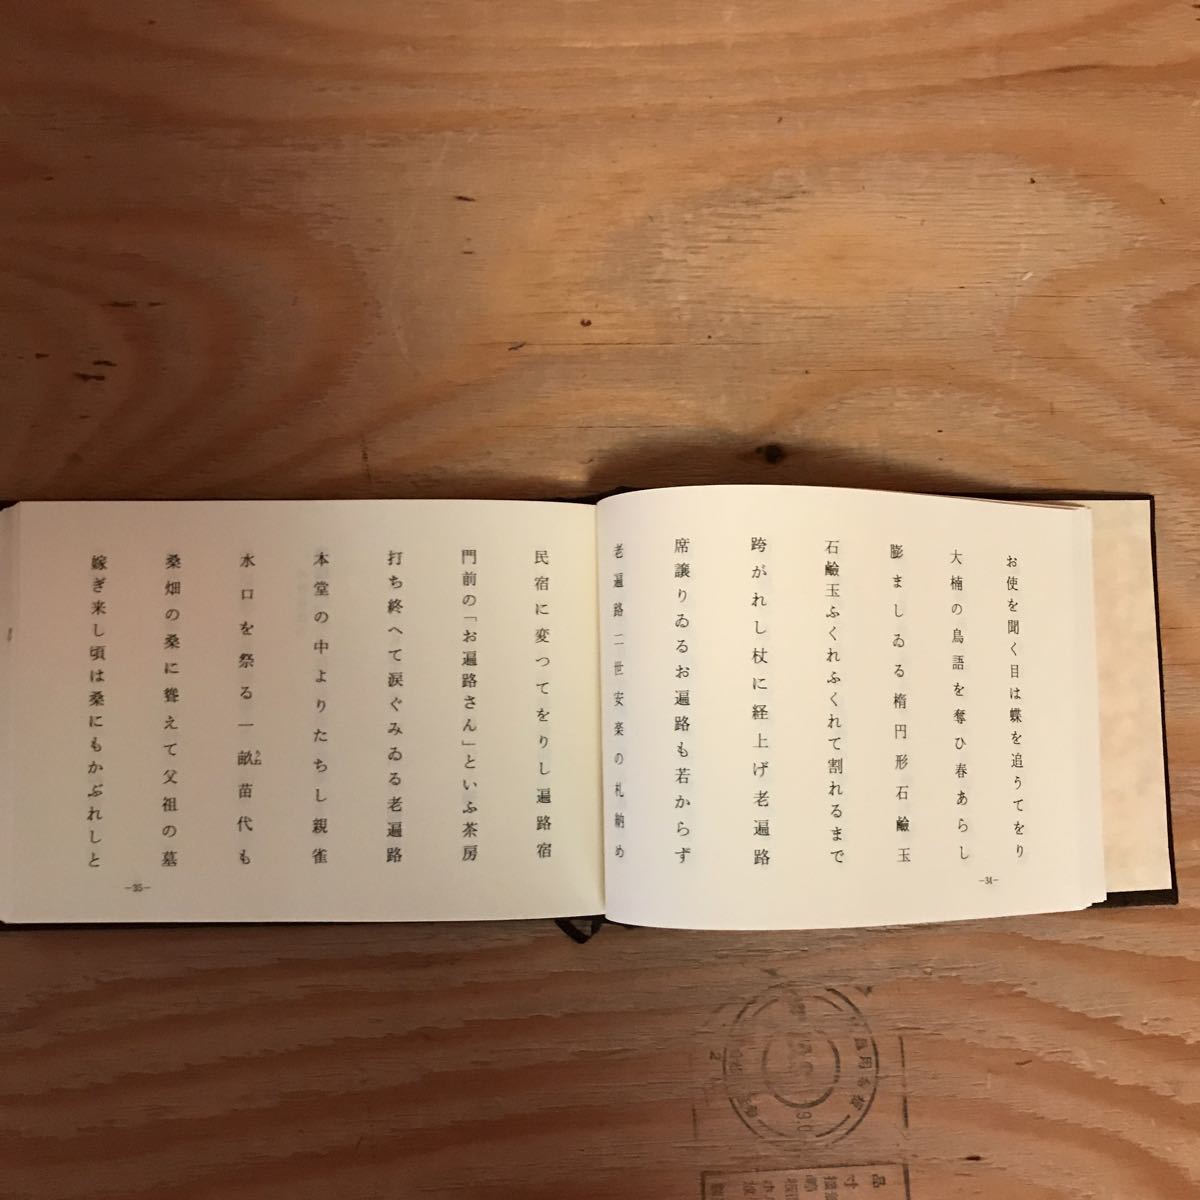 お使を聞く目は蝶を追うてをり
大楠の鳥語を奪ひ春あらし
膨ましゐる楕円形石鹼玉
石鹼玉ふくれふくれて割れるまで
跨がれし杖に経上げ老遍路
席譲りゐるお遍路も若からず
老遍路二世安楽の札納め
—34—
民宿に変つてをりし遍路宿
門前の「お遍路さん」といふ茶房
打ち終へて涙ぐみゐる老遍路
本堂の中よりたちし親雀
水口を祭る一畝苗代も
うね
桑畑の桑に聳えて父祖の墓
嫁ぎ来し頃は桑にもかぶれしと
—35—